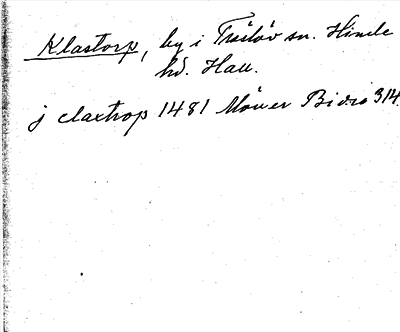 Klastorp, by i Träslöv sn. Himle
hd. Hall.
j claxtrop 1481 Möller Bidrag 314